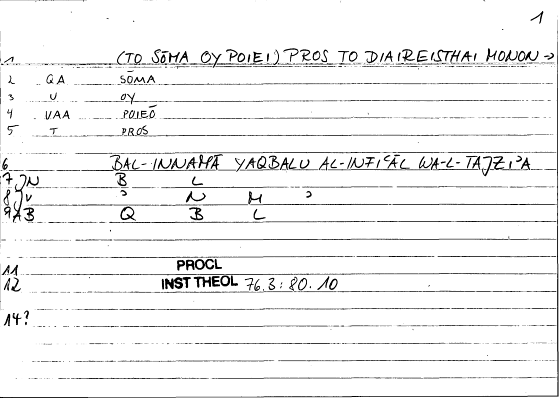 1
1 (TO SŌMA OY POIEI) PROS TO DIAIREISTHAI MONON →
2 QA SŌMA
3 U OY
4 VAA POIEŌ
5 T PROS
6 BAL-INNAMĀ YAQBALU AL-INFIʿĀL WA-L-TAJZIʾA
7 JN B L
8 JU ʾ N M ʾ
9 AB Q B L
11 PROCL
12 INST THEOL 76.3: 80.10
14?